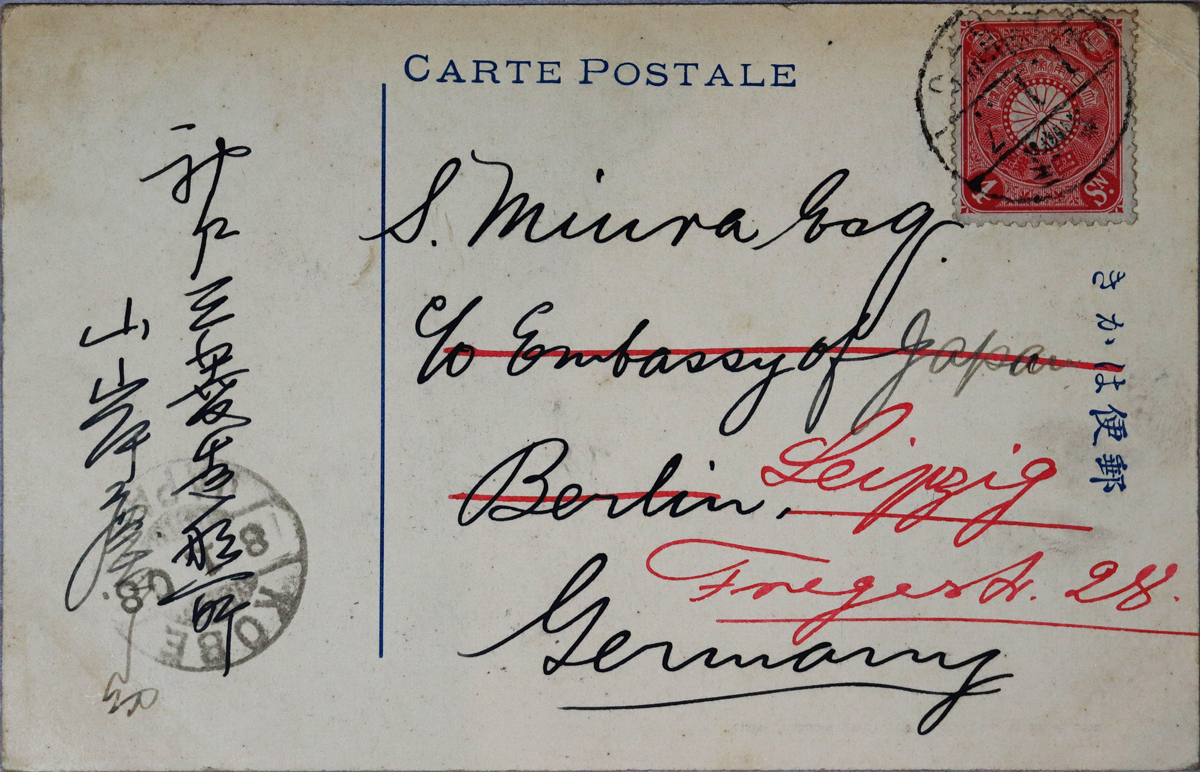 CARTE POSTALE
S. Miura Esq.
c/o Embassy of Japan
Berlin, Leipzig
Fregestr. 28.
Germany
きかは便郵
4 Sn.
神戸三菱造船所
山岸
KOBE
8